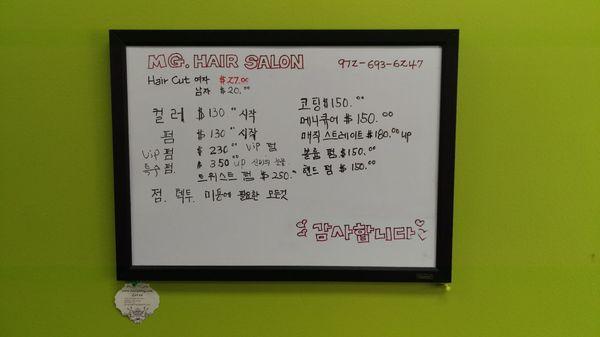 MG. HAIR SALON 972-693-6247
Hair Cut 여자 $27.00
남자 $20.00
컬러 $130.00 시작
펌 $130.00 시작
Vip 펌 $230.00 Vip 펌
특수펌 $350.00 up
트위스트 펌 $250.00
점. 텍투. 미용에 필요한 모든것
코팅 $150.00
메니큐어 $150.00
매직 스트레이트 $180.00 up
볼륨 펌 $150.00
핸드 펌 $150.00
감사합니다